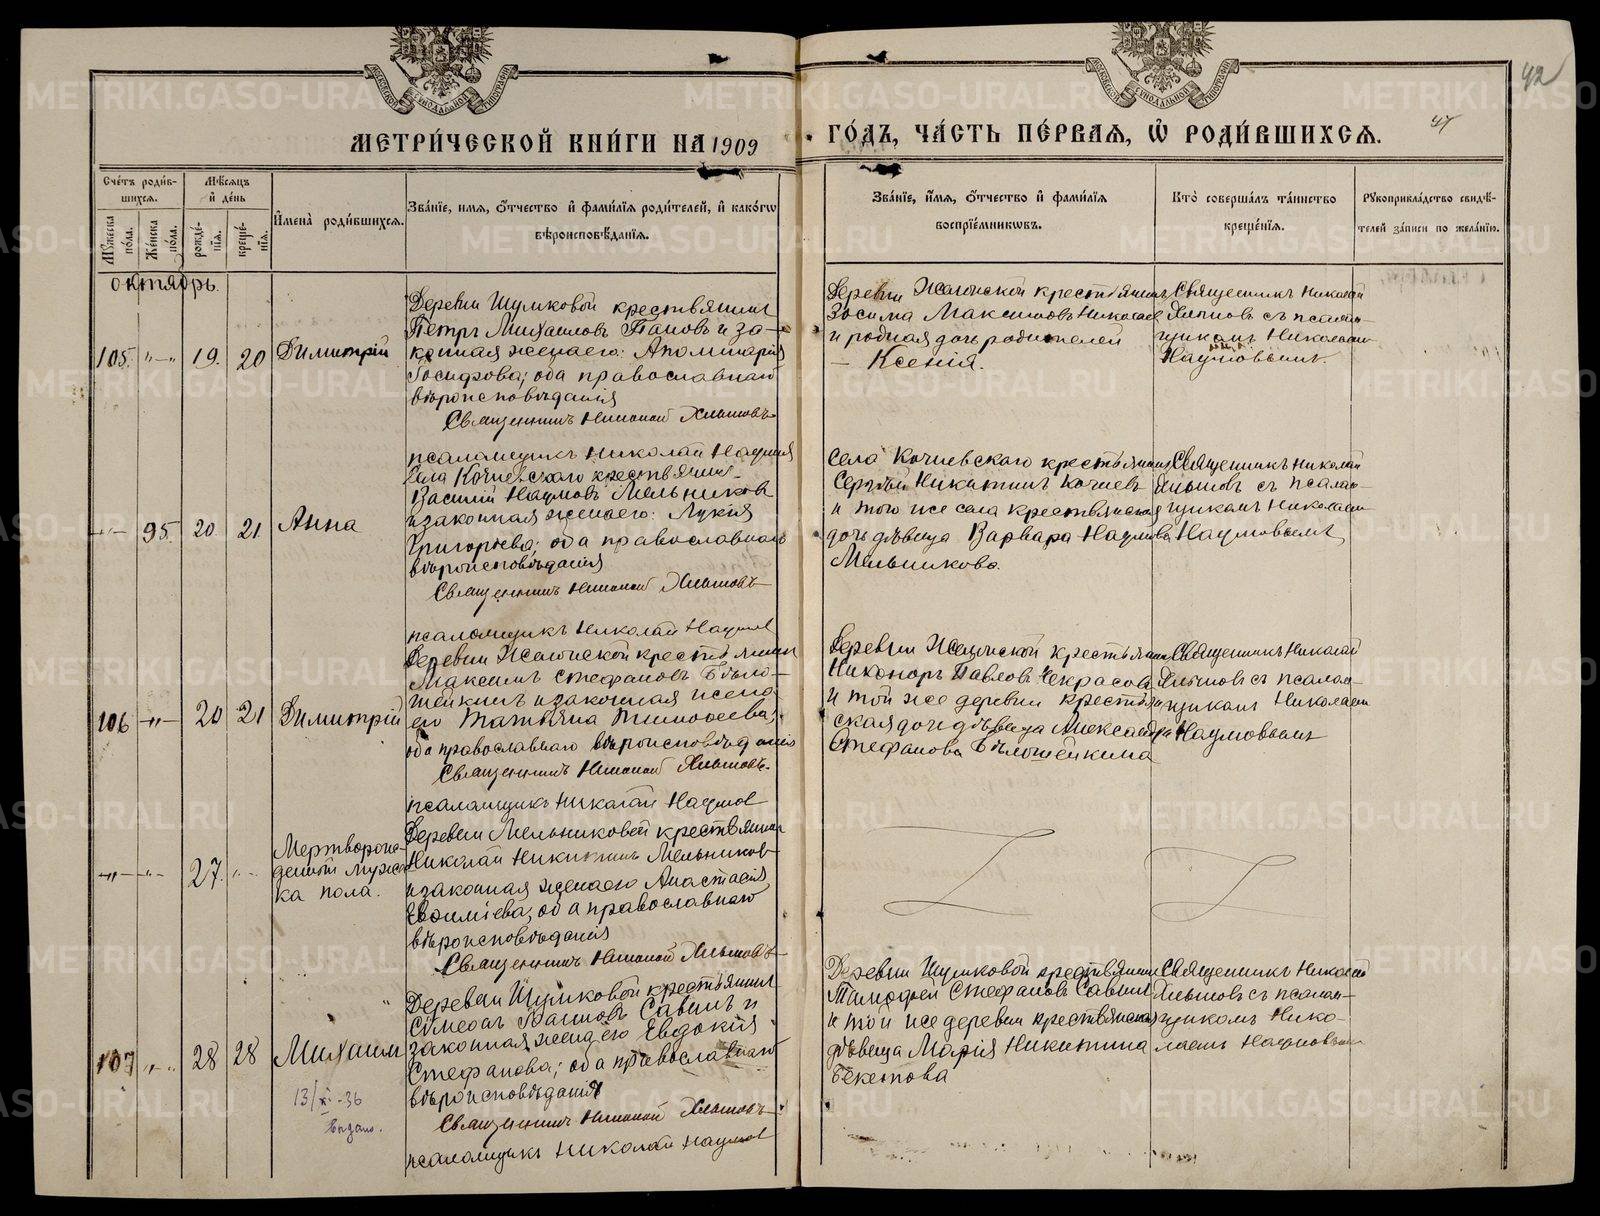 МЕТРИ́ЧЕСКОЙ КНИ́ГИ НА 1909
ГО́ДЪ, ЧА́СТЬ ПЕ́РВАѦ, Ѡ҆ РОДИ́ВШИХСѦ.
42
47
Сче́тъ роди́в-
шихсѧ.
Мꙋ́жеска по́ла.
Же́нска по́ла.
Мѣ́сѧцъ и҆ де́нь
рожде́-
нїѧ.
креще́-
нїѧ.
И҆мена̀ роди́вшихсѧ.
Зва́нїе, имѧ, ѻ҆́тчество и҆ фами́лїѧ роди́телей, и҆ како́гѡ
вѣроисповѣ́данїѧ.
Зва́нїе, и҆́мѧ, ѻ҆́тчество и҆ фами́лїѧ
воспрїе́мникѡвъ.
Кто̀ соверша́лъ та́инство
креще́нїѧ.
Рꙋкоприкла́дство свидѣ́-
телей за́писи по жела́нїю.
Октябрь.
105. „-„ 19. 20 Димитрій
Деревни Шумковой крестьянинъ
Петръ Михаиловъ Пановъ и за-
конная жена его: Аполинарія
Іосифова; оба православнаго
вѣроисповѣданія
Священникъ Николай Хлыновъ
псаломщикъ Николай Наумов
Зосима Максимовъ
и родная дочь родителей
- Ксенія.
Священникъ Николай
Хлыновъ съ псалом-
щикомъ Николаем
Наумовымъ.
-„- 95. 20 21 Анна
Села Кочневскаго крестьянинъ
Василій Наумовъ Мельниковъ
и законная жена его: Лукія
Григорьева; оба православнаго
вѣроисповѣданія
Священникъ Николай Хлыновъ
псаломщикъ Николай Наумов
Села Кочневскаго крестьянинъ
Сергѣй Никитинъ Кочнев
и того же села крестьянская
дочь дѣвица Варвара Наумова
Мельникова.
Священникъ Николай
Хлыновъ съ псалом-
щикомъ Николаем
Наумовымъ
106 -„- 20 21 Димитрій
Максимъ Стефановъ Бѣло-
шейкинъ и законная жена
его Татьяна Тимоѳеева;
оба православнаго вѣроисповѣданія
Священникъ Николай Хлыновъ
псаломщикъ Николай Наумов
Никоноръ Павловъ Некрасовъ
и той же деревни крестьян
ская дочь дѣвица Александра
Стефанова Бѣлошейкина
Священникъ Николай
Хлыновъ съ псалом-
щикомъ Николаем
Наумовымъ
-„- -„- 27. „-
Мертворож-
денный мужес
ка пола.
Деревни Мельниковой крестьянинъ
Николай Никитинъ Мельников
и законная жена его Анастасія
Евѳиміева; оба православнаго
вѣроисповѣданія
Священникъ Николай Хлыновъ
107 „-„ 28 28 Михаилъ
13/XI-36
выдано.
Деревни Шумковой крестьянинъ
Сѵмеонъ Савинъ и
законная жена его Евдокія
Стефанова; оба православнаго
вѣроисповѣданія
Священникъ Николай Хлыновъ
псаломщикъ Николай Наумов
Деревни Шумковой крестьянинъ
Стефановъ Савинъ
и той же деревни крестьянская
дѣвица Марія Никитина
Бекетова
Священникъ Николай
Хлыновъ съ псалом-
щикомъ Нико-
лаемъ Наумовым
METRIKI.GASO-URAL.RU